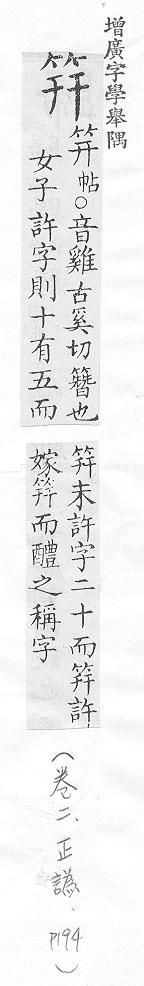 增廣字學舉隅
笄 笄帖○音雞古奚切簪也
女子許字則十有五而
笄未許字二十而笄許
嫁笄而醴之稱字
(卷二、正譌、P194)